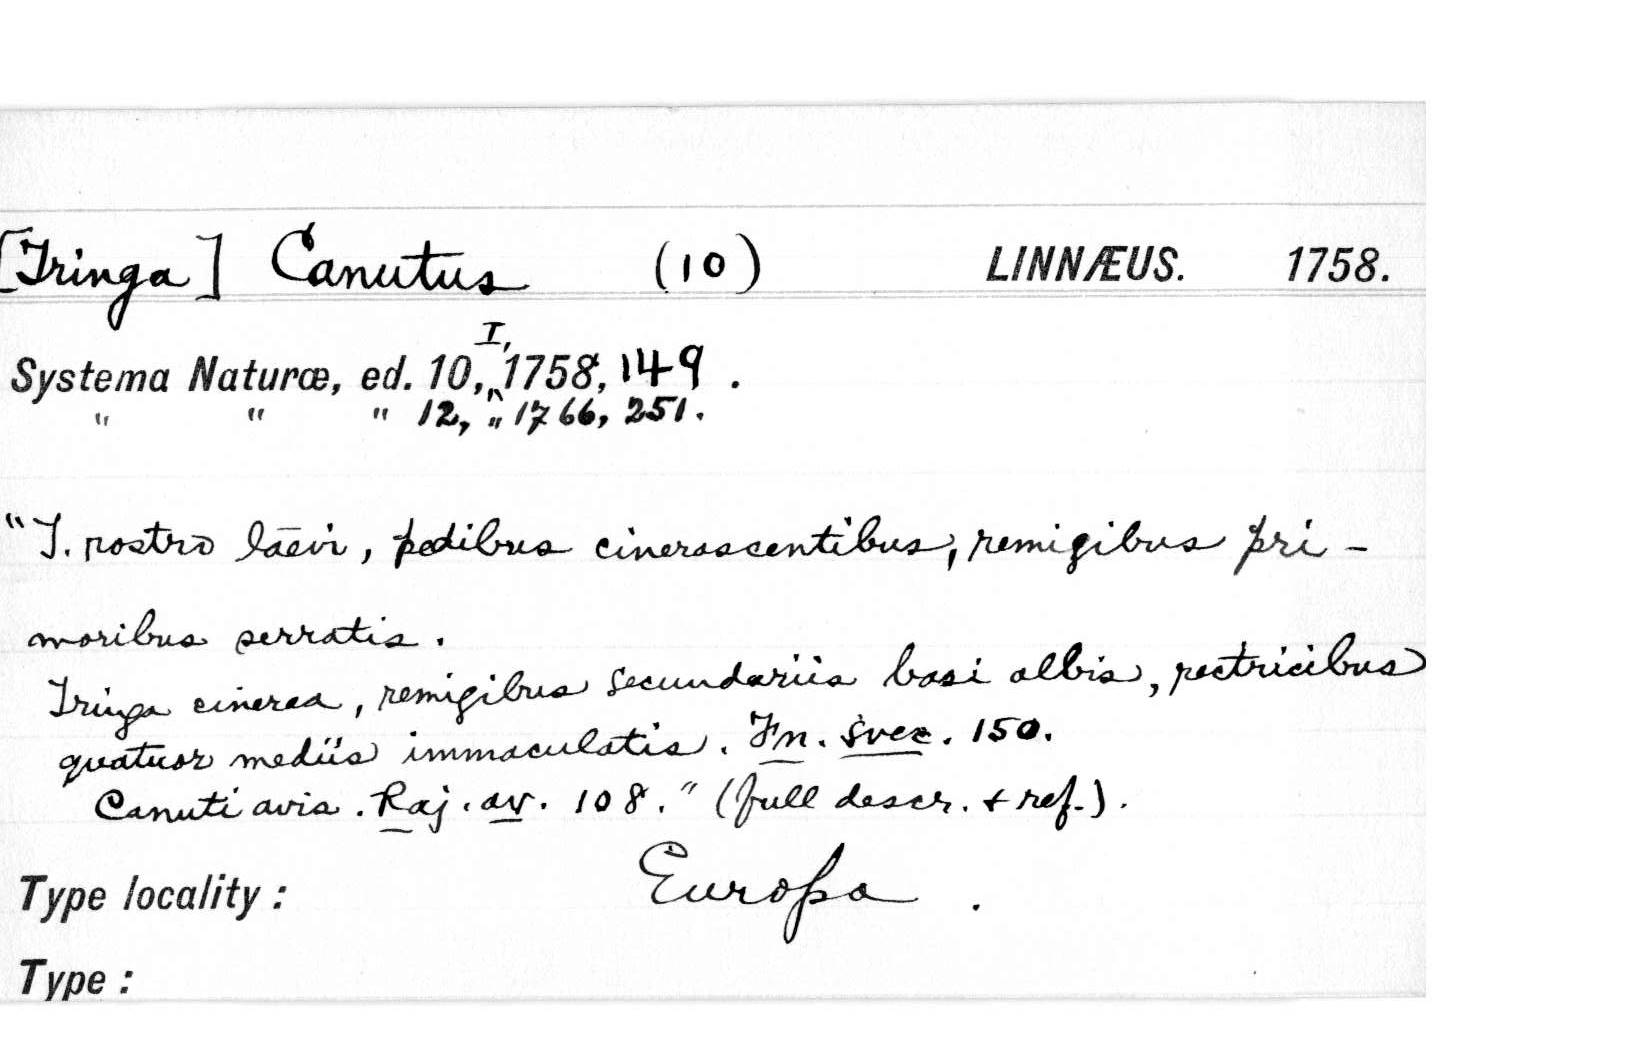 [Tringa] Canutus (10) LINNÆUS. 1758.
Systema Naturæ, ed. 10, I, 1758, 149.
" " " 12, " 1766, 251.
"T. rostro laevi, pedibus cinerascentibus, remigibus pri-
moribus serratis.
Tringa cinerea, remigibus secundariis basi albis, rectricibus
quatuor mediis immaculatis. Fn. svec. 150.
Canuti avis. Raj. av. 108." (full descr. + ref.).
Type locality: Europa.
Type: